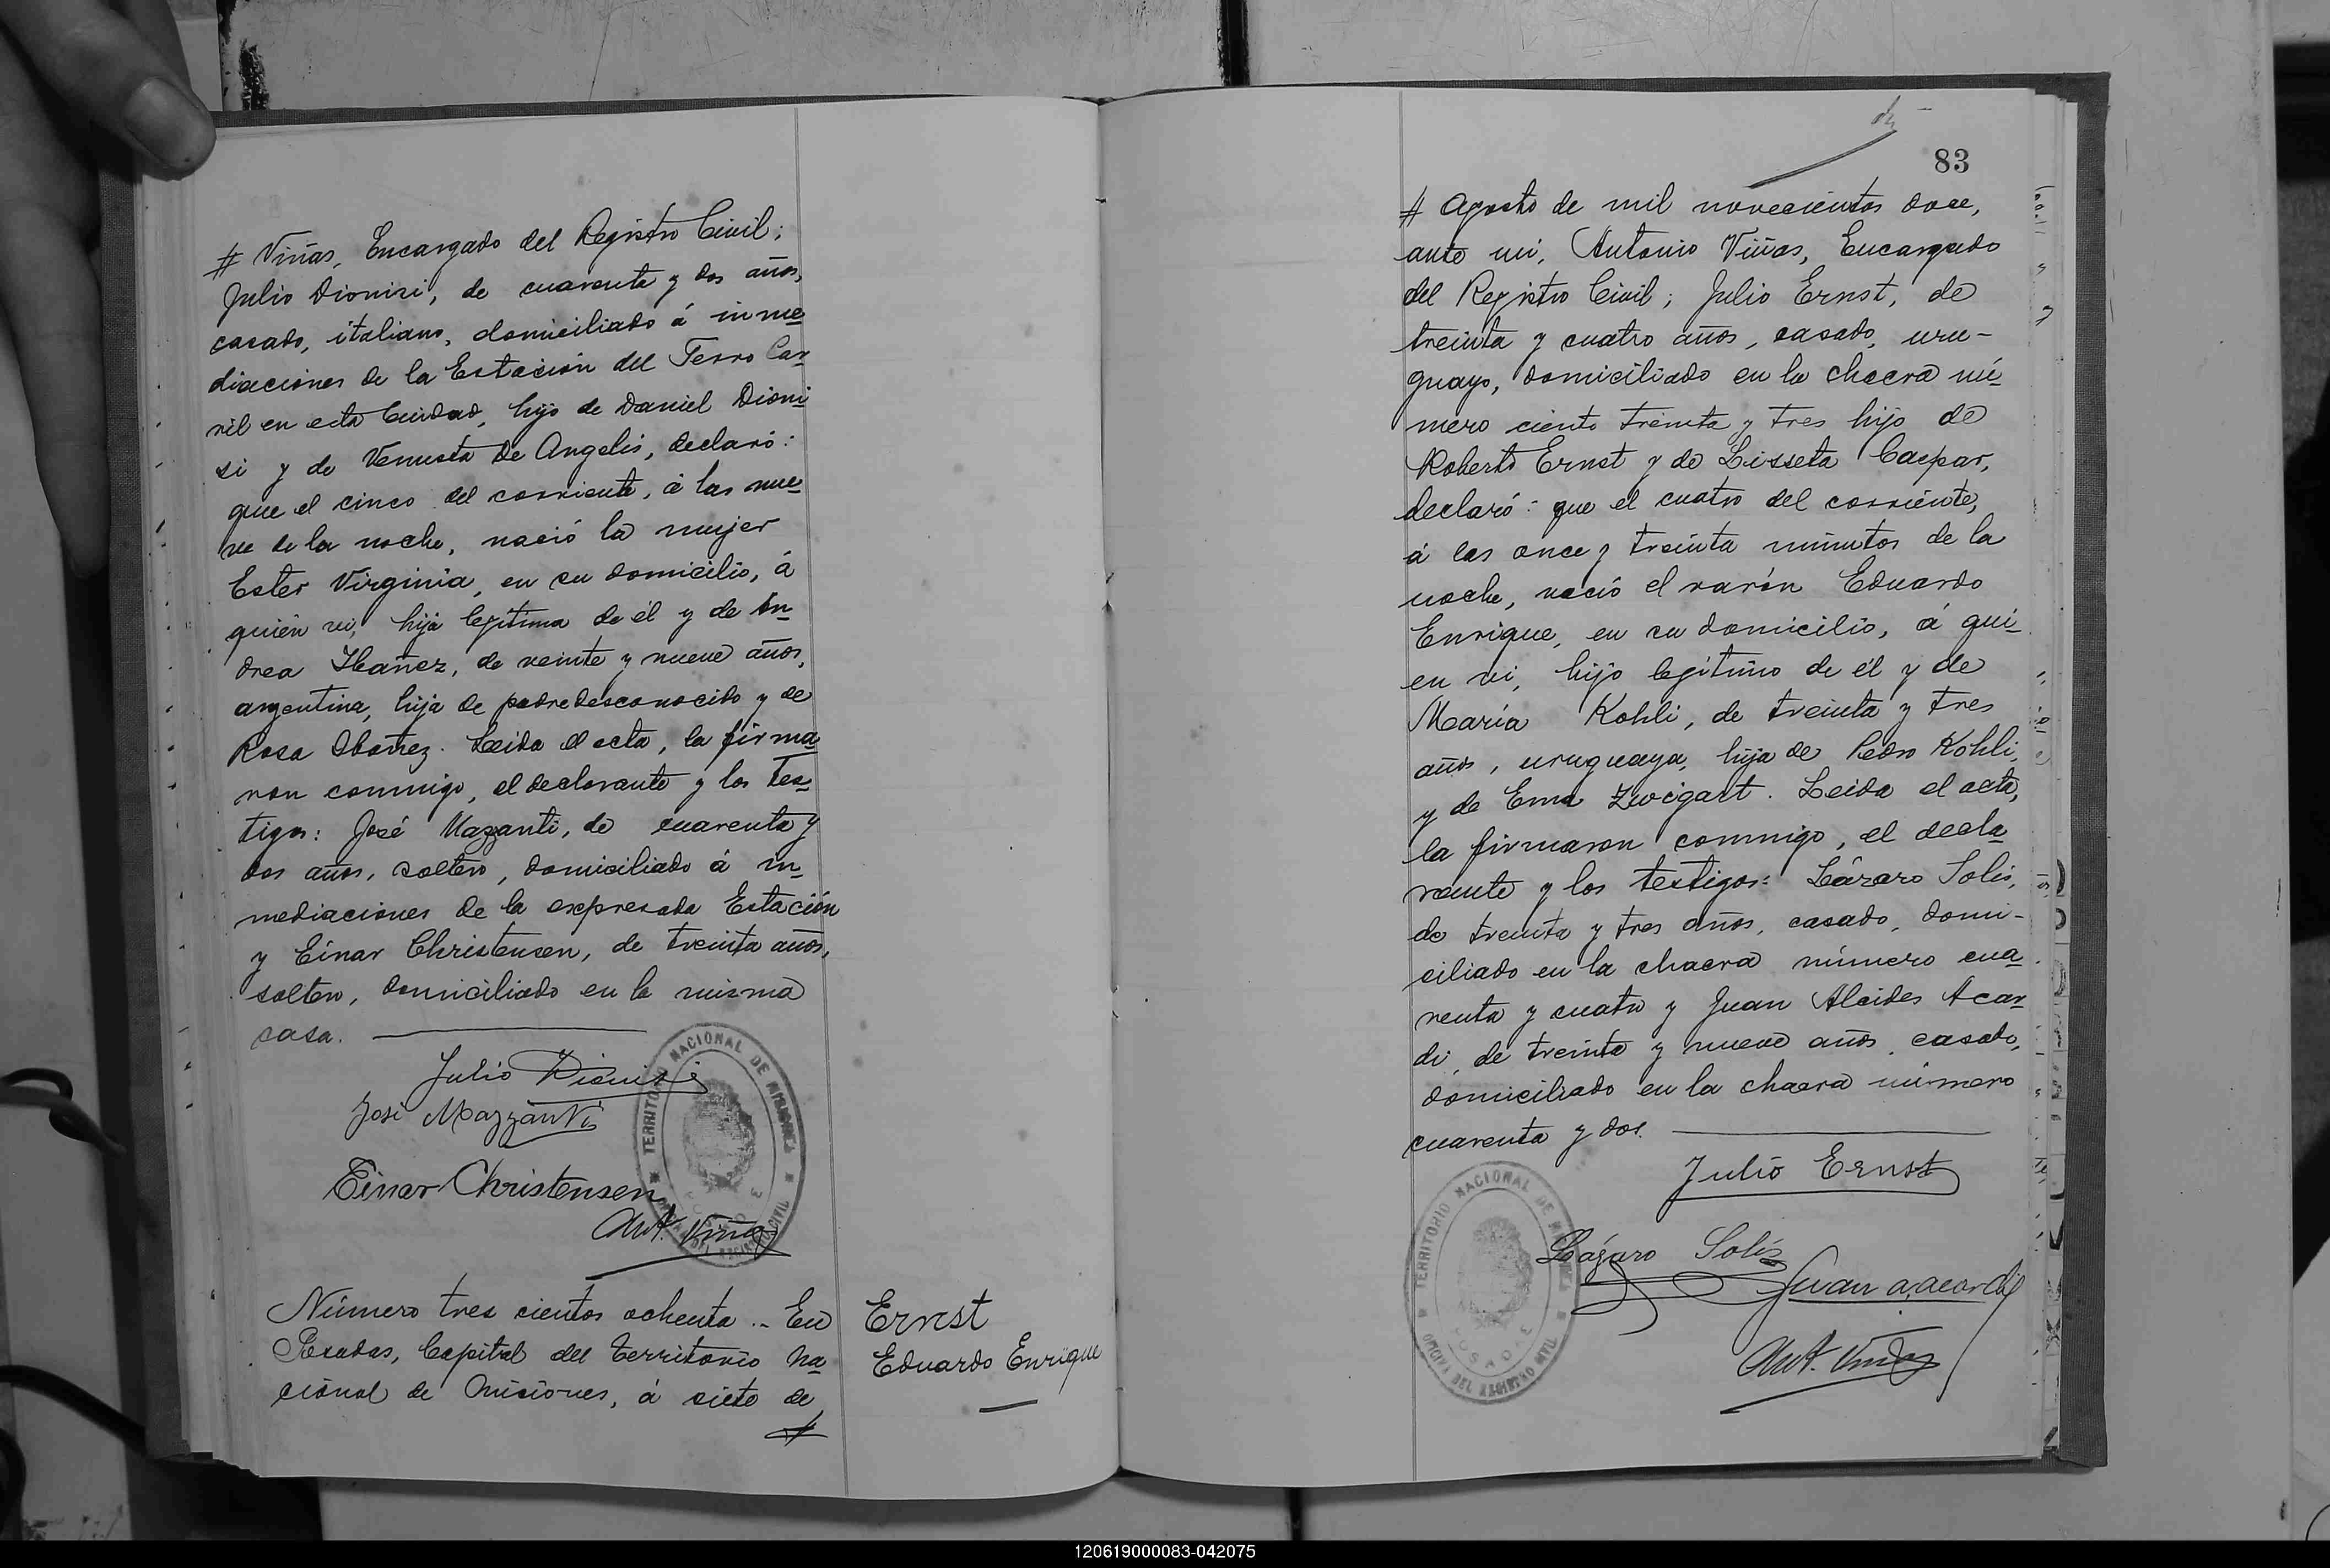 # Viñas, Encargado del Registro Civil;
Julio Dionisi, de cuarenta y dos años,
casado, italiano, domiciliado á inme
diaciones de la Estación del Ferro Car
ril en esta Ciudad, hijo de Daniel Dioni
si y de Venusta De Angelis, declaró:
que el cinco del corriente, á las nue
ve de la noche, nació la mujer
Ester Virginia, en su domicilio, á
quién vi, hija legítima de él y de An
drea Ibañez, de veinte y nueve años,
argentina, hija de padre desconocido y de
Rosa Ibañez. Leida el acta, la firma
ron conmigo, el declarante y los tes
tigos: José Mazzanti, de cuarenta y
dos años, soltero, domiciliado á in
mediaciones de la expresada Estación
y Einar Christensen, de treinta años,
soltero, domiciliado en la misma
casa.
Julio Dionisi
José Mazzanti
Einar Christensen
Ant. Viñas
TERRITORIO NACIONAL DE MISIONES
OFICINA DEL REGISTRO CIVIL
POSADAS
Número tres cientos ochenta .- En
Posadas, Capital del Territorio Na
cional de Misiones, á siete de
#
Ernst
Eduardo Enrique
83
# Agosto de mil novecientos doce,
ante mi, Antonio Viñas, Encargado
del Registro Civil; Julio Ernst, de
treinta y cuatro años, casado, uru-
guayo, domiciliado en la chacra nú
mero ciento treinta y tres hijo de
Roberto Ernst y de Lisseta Caspar,
declaró: que el cuatro del corriente,
á las once y treinta minutos de la
noche, nació el varón Eduardo
Enrique, en su domicilio, á qui
en vi, hijo legítimo de él y de
María Kohli, de treinta y tres
años, uruguaya, hija de Pedro Kohli,
y de Ema Zwigart. Leida el acta,
la firmaron conmigo, el decla
rante y los testigos: Lázaro Solis,
de treinta y tres años, casado, domi-
ciliado en la chacra número cua
renta y cuatro y Juan Alcides Acar
di, de treinta y nueve años, casado,
domiciliado en la chacra número
cuarenta y dos.
Julio Ernst
Lázaro Solís
Juan A. Acardi
Ant. Viñas
TERRITORIO NACIONAL DE MISIONES
OFICINA DEL REGISTRO CIVIL
POSADAS
120619000083-042075